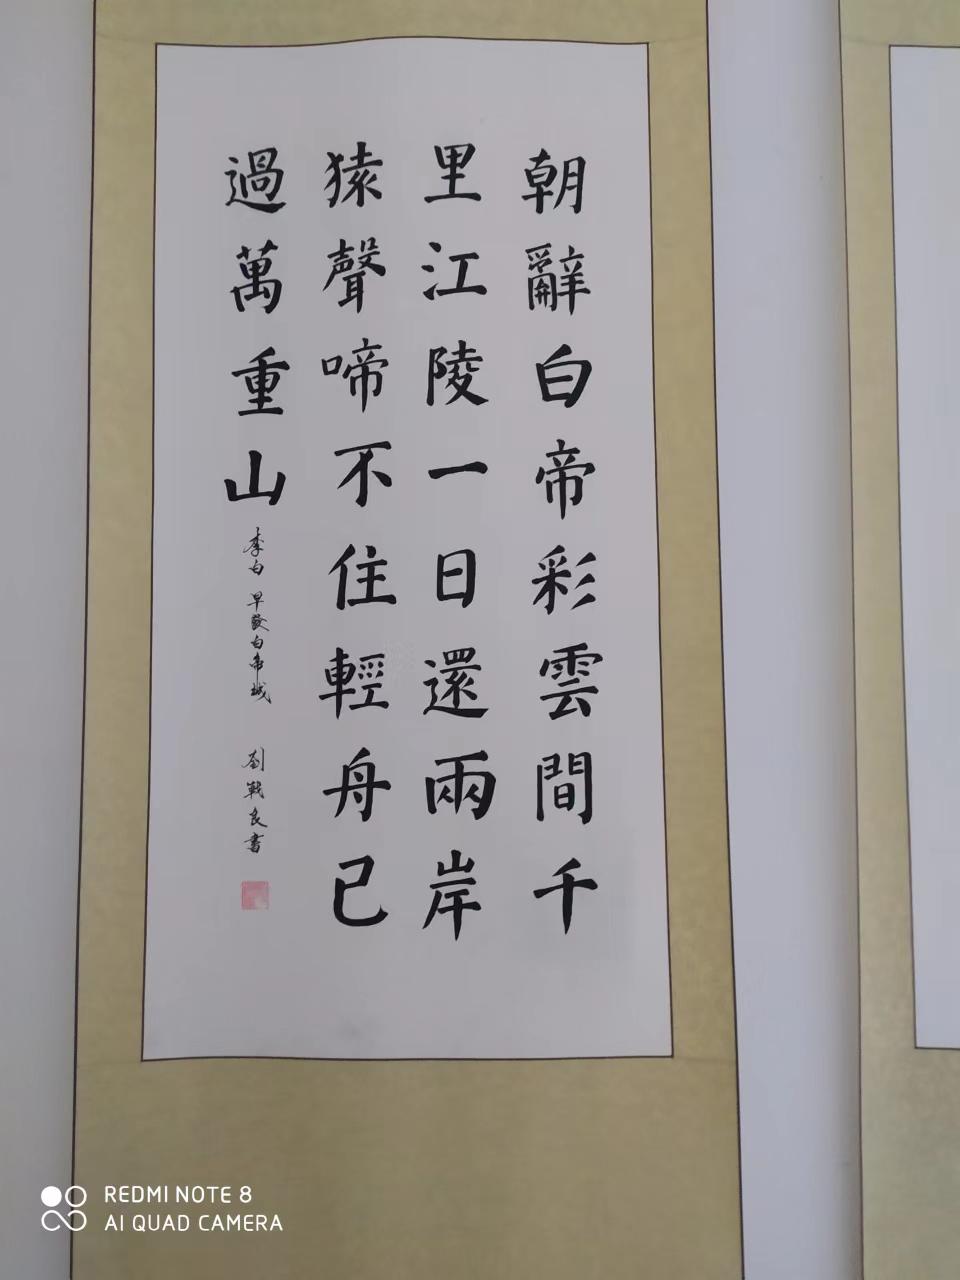 朝辭白帝彩雲間千
里江陵一日還兩岸
猿聲啼不住輕舟已
過萬重山
李白 早發白帝城 劉戰良書
REDMI NOTE 8
AI QUAD CAMERA